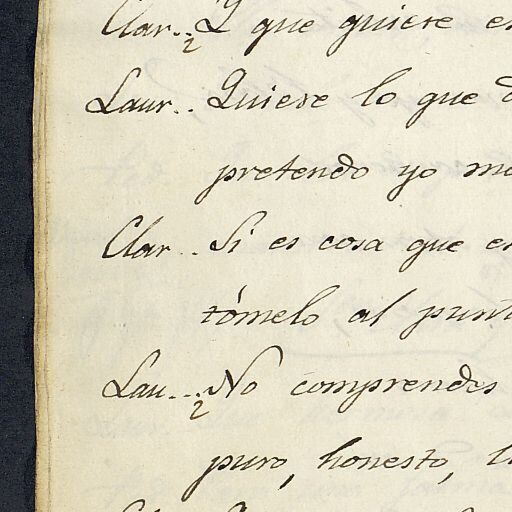 Clar..¿Y que quiere
Laur.. Quiere lo que
pretendo yo
Clar.. Si es cosa que
tómelo al
Lau...¿No comprendes
puro, honesto,